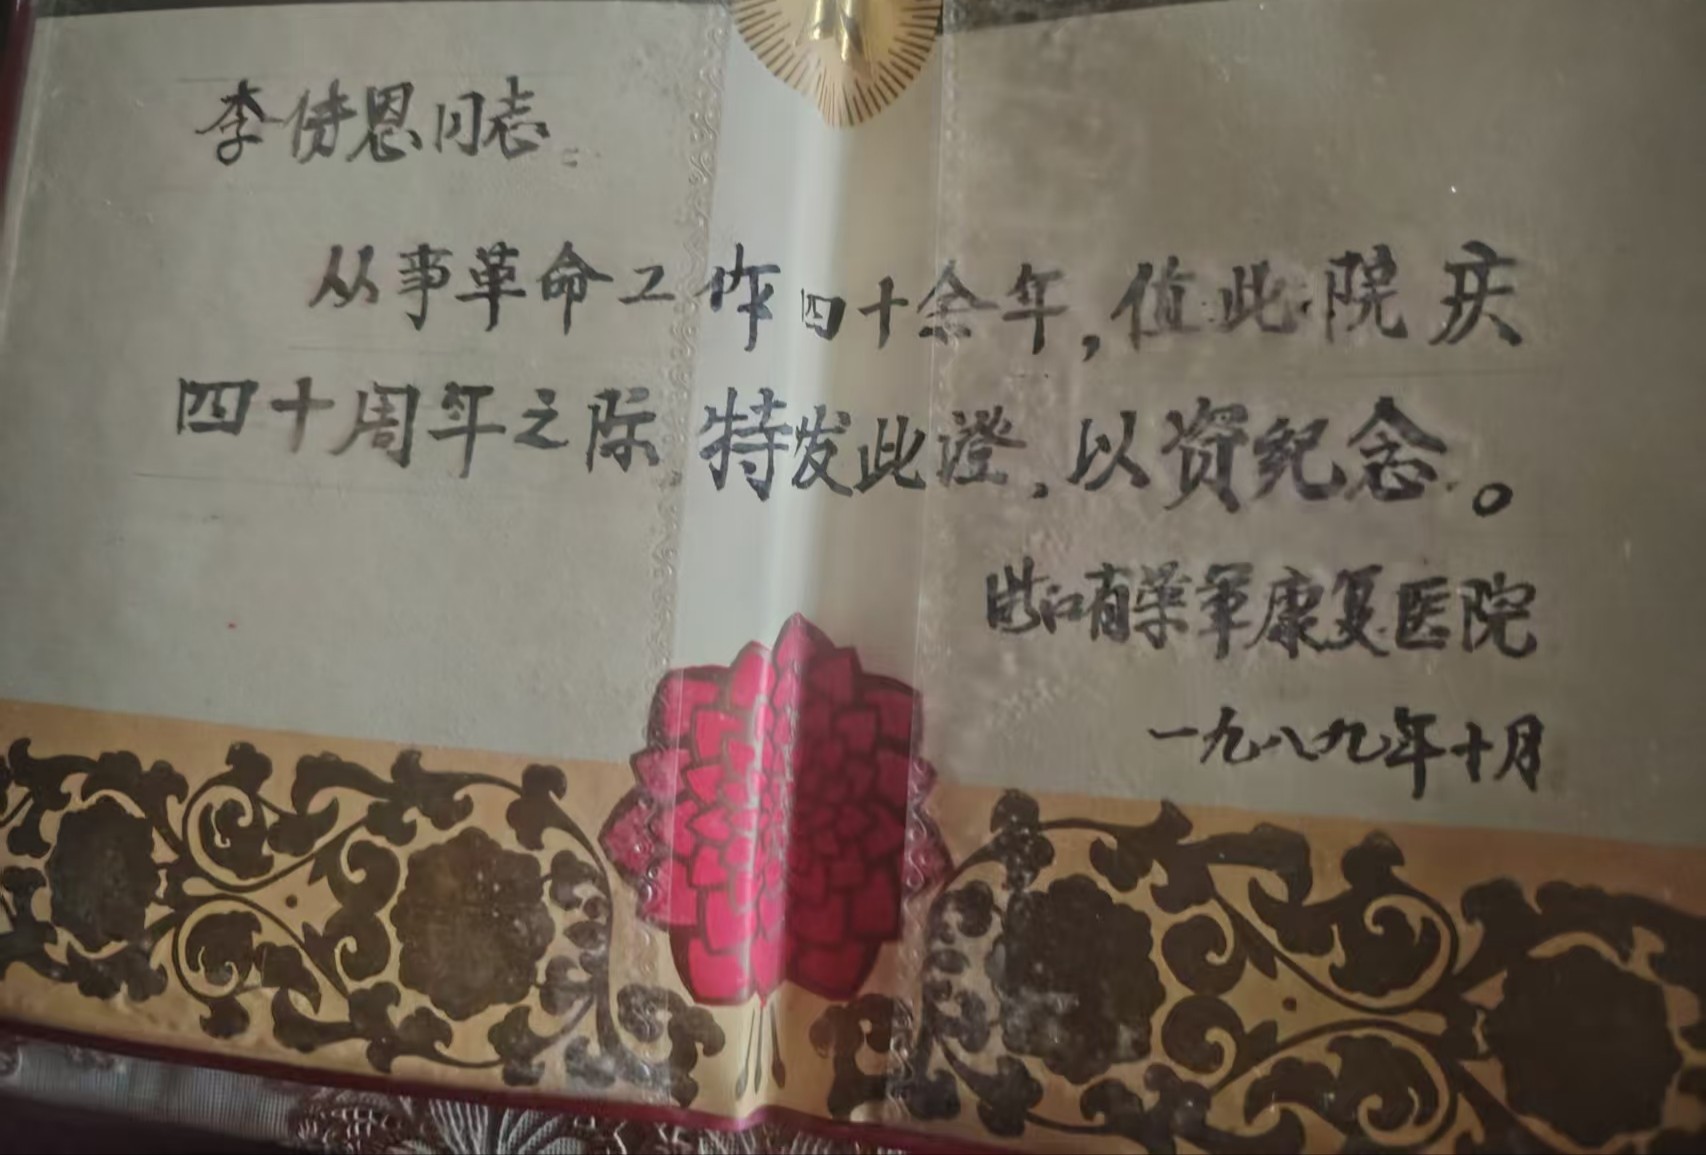 李侍恩同志:
从事革命工作四十余年,值此院庆
四十周年之际 特发此澄,以资纪念。
浙江省荣军康复医院
一九八九年十月